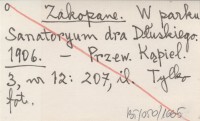 o Zakopane. W parku
Sanatoryum dra Dłuskiego.
1906. — Przew. Kąpiel.
3, nr 12: 207, il. Tylko
fot.